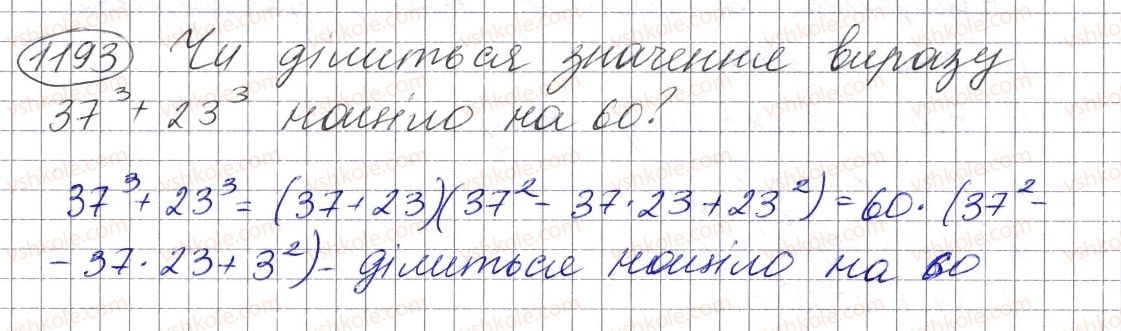 1193 Чи ділиться значення виразу
37³ + 23³ націло на 60?
37³ + 23³ = (37 + 23)(37² - 37·23 + 23²) = 60·(37² -
- 37·23 + 3²) - ділиться націло на 60